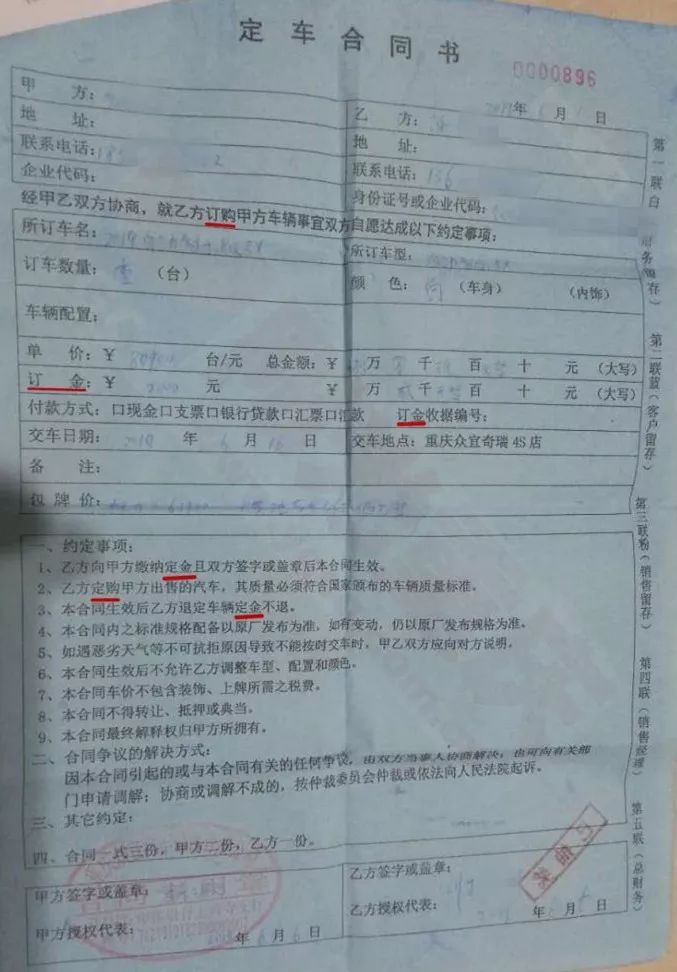 定车合同书
0000896
年 月 日
甲方：
乙方：
地址：
地址：
联系电话：
联系电话：136
企业代码：
身份证号或企业代码：
经甲乙双方协商，就乙方订购甲方车辆事宜双方自愿达成以下约定事项：
所订车名：2019
所订车型：
订车数量：壹（台）
颜色：（车身）（内饰）
车辆配置：
单价：￥ 台/元 总金额：￥ 万 千 百 十 元（大写）
订金：￥ 元 ￥ 万 贰千 百 十 元（大写）
付款方式：口现金口支票口银行贷款口汇票口汇款 订金收据编号：
交车日期：2019年6月16日 交车地点：重庆众宜奇瑞4S店
备注：
包牌价：
一、约定事项：
1、乙方向甲方缴纳定金且双方签字或盖章后本合同生效。
2、乙方定购甲方出售的汽车，其质量必须符合国家颁布的车辆质量标准。
3、本合同生效后乙方退定车辆定金不退。
4、本合同内之标准规格配备以原厂发布为准，如有变动，仍以原厂发布规格为准。
5、如遇恶劣天气等不可抗拒原因导致不能按时交车时，甲乙双方应向对方说明。
6、本合同生效后不允许乙方调整车型、配置和颜色。
7、本合同车价不包含装饰、上牌所需之税费。
8、本合同不得转让、抵押或典当。
9、本合同最终解释权归甲方所拥有。
二、合同争议的解决方式：
因本合同引起的或与本合同有关的任何争议，由双方当事人协商解决；也可向有关部
门申请调解；协商或调解不成的，按仲裁委员会仲裁或依法向人民法院起诉。
三、其它约定：
四、合同一式三份，甲方二份，乙方一份。
甲方签字或盖章：
乙方签字或盖章：
甲方授权代表：
年6月6日
乙方授权代表：
年 月 日
第一联白（财务留存）
第二联蓝（客户留存）
第三联粉（销售留存）
第四联（销售经理）
第五联（总财务）